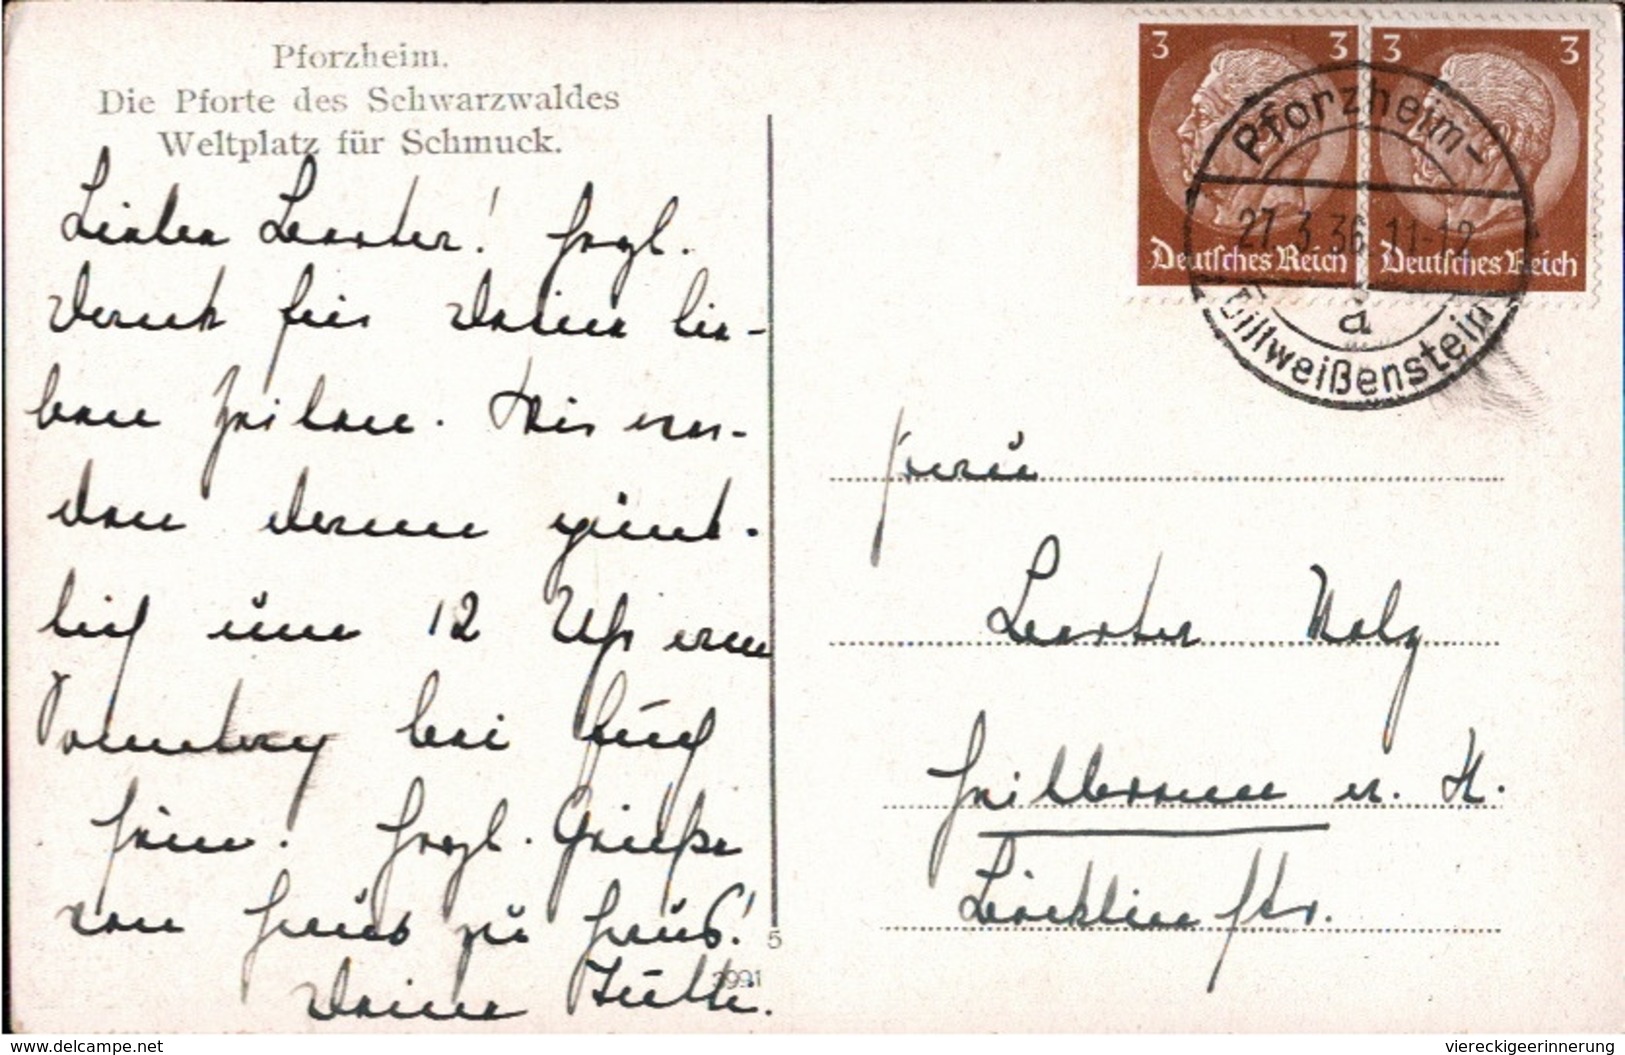 Pforzheim.
Die Pforte des Schwarzwaldes
Weltplatz für Schmuck.
Liebe! Herzl.
Dank für Deine lie-
ben Zeilen. Wir wer-
den dann pünkt-
lich um 12 Uhr am
Sonntag bei Euch
sein. Herzl. Grüße
von Haus zu Haus!
Deine
3 3 3 3
Deutsches Reich Deutsches Reich
Pforzheim-
27.3.36 11-12
a
Dillweißenstein
Frau
Heilbronn a. N.
str.
5
3991
www.delcampe.net
viereckigeerinnerung